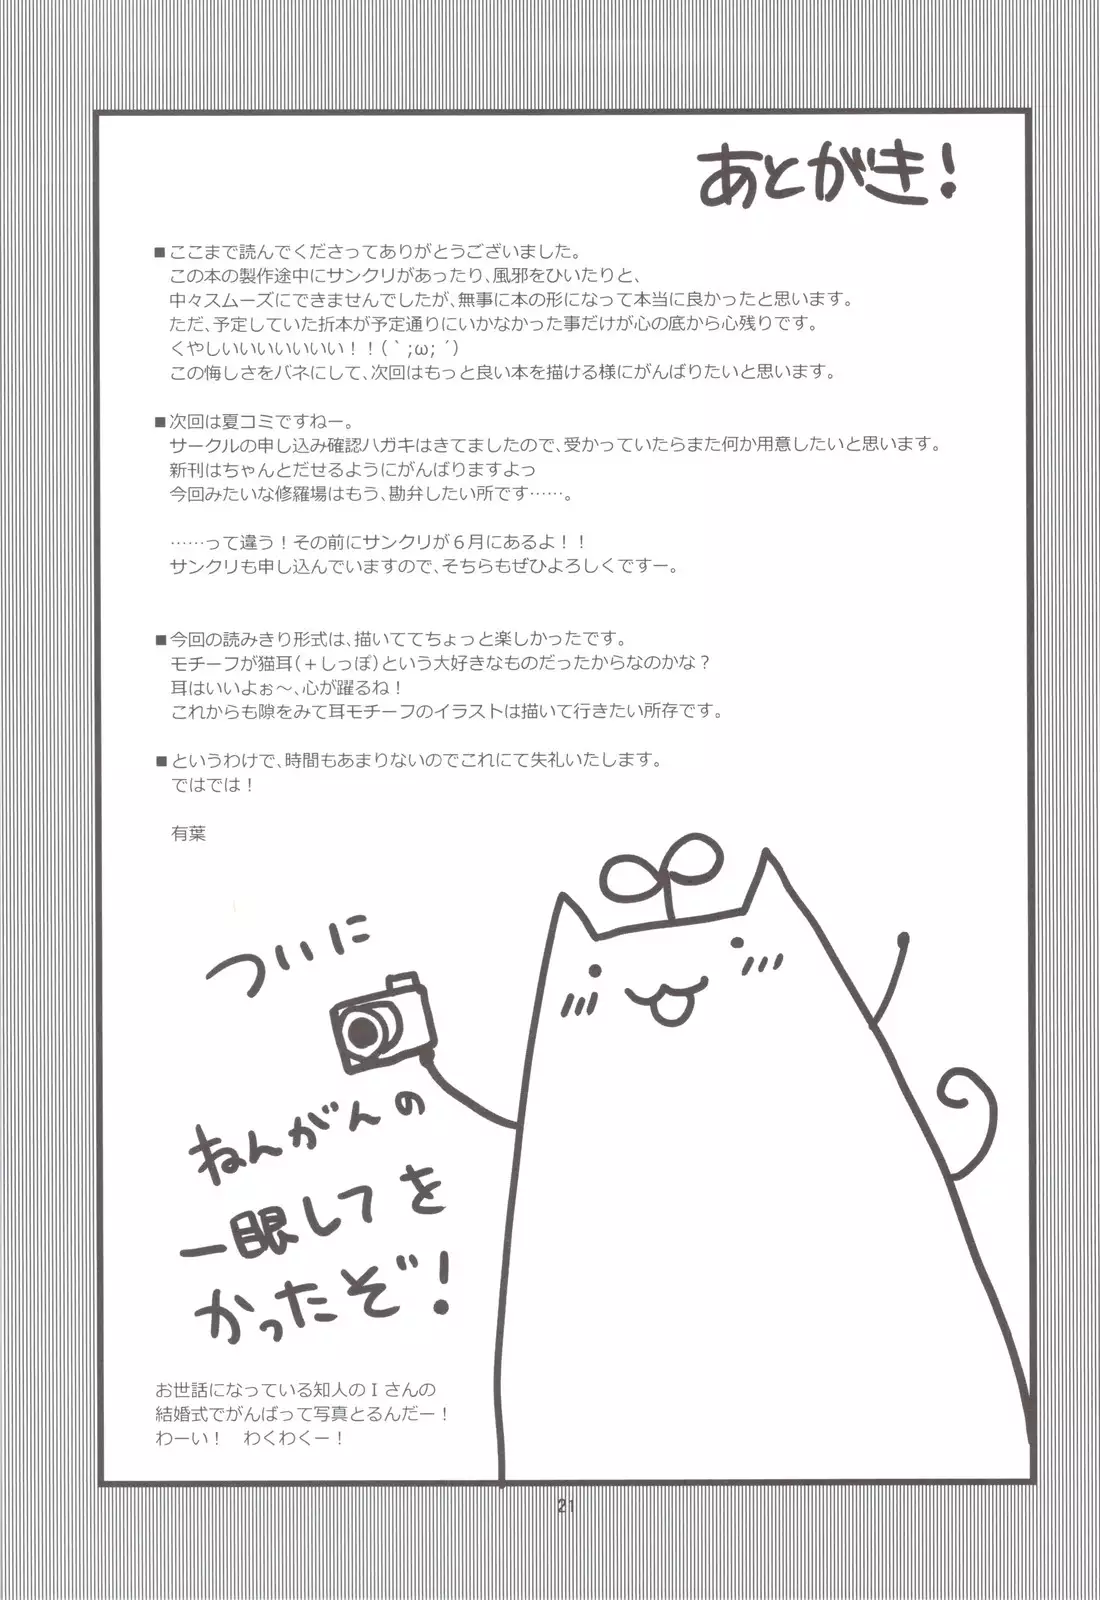 あとがき！
■ここまで読んでくださってありがとうございました。
この本の製作途中にサンクリがあったり、風邪をひいたりと、
中々スムーズにできませんでしたが、無事に本の形になって本当に良かったと思います。
ただ、予定していた折本が予定通りにいかなかった事だけが心の底から心残りです。
くやしいいいいいいい！！(｀;ω;´)
この悔しさをバネにして、次回はもっと良い本を描ける様にがんばりたいと思います。
■次回は夏コミですねー。
サークルの申し込み確認ハガキはきてましたので、受かっていたらまた何か用意したいと思います。
新刊はちゃんとだせるようにがんばりますよっ
今回みたいな修羅場はもう、勘弁したい所です……。
……って違う！その前にサンクリが６月にあるよ！！
サンクリも申し込んでいますので、そちらもぜひよろしくですー。
■今回の読みきり形式は、描いててちょっと楽しかったです。
モチーフが猫耳(＋しっぽ)という大好きなものだったからなのかな？
耳はいいよぉ～、心が躍るね！
これからも隙をみて耳モチーフのイラストは描いて行きたい所存です。
■というわけで、時間もあまりないのでこれにて失礼いたします。
ではでは！
有葉
ついに
ねんがんの
一眼レフを
かったぞ！
お世話になっている知人のＩさんの
結婚式でがんばって写真とるんだー！
わーい！　わくわくー！
21